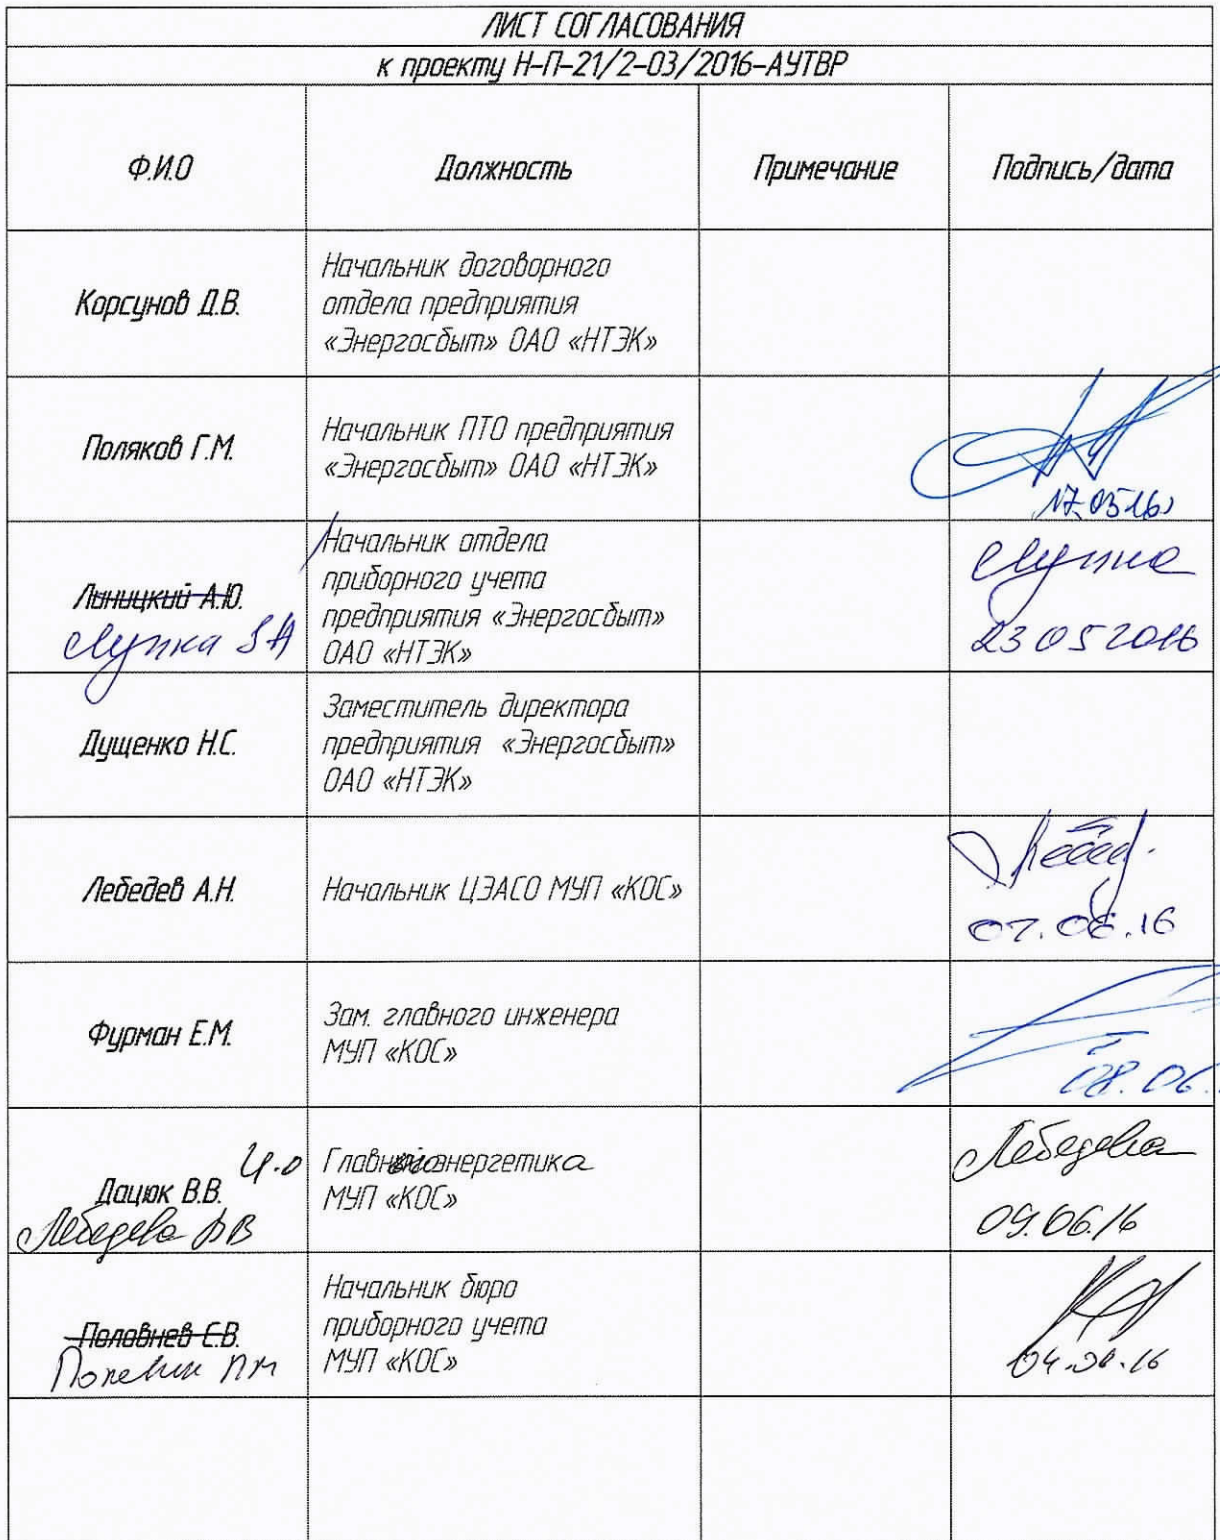 ЛИСТ СОГЛАСОВАНИЯ
к проекту Н-П-21/2-03/2016-АУТВР
Ф.И.О
Должность
Примечание
Подпись/дата
Корсунов Д.В.
Начальник договорного
отдела предприятия
«Энергосбыт» ОАО «НТЭК»
Поляков Г.М.
Начальник ПТО предприятия
«Энергосбыт» ОАО «НТЭК»
17.05.16
Линицкий А.Ю.
Лупка
Начальник отдела
приборного учета
предприятия «Энергосбыт»
ОАО «НТЭК»
23 05 2016
Дущенко Н.С.
Заместитель директора
предприятия «Энергосбыт»
ОАО «НТЭК»
Лебедев А.Н.
Начальник ЦЭАСО МУП «КОС»
07.06.16
Фурман Е.М.
Зам. главного инженера
МУП «КОС»
08.06.
И.о
Дацюк В.В.
Лебедева
Главного энергетика
МУП «КОС»
Лебедева
09.06.16
Половнев Е.В.
Начальник бюро
приборного учета
МУП «КОС»